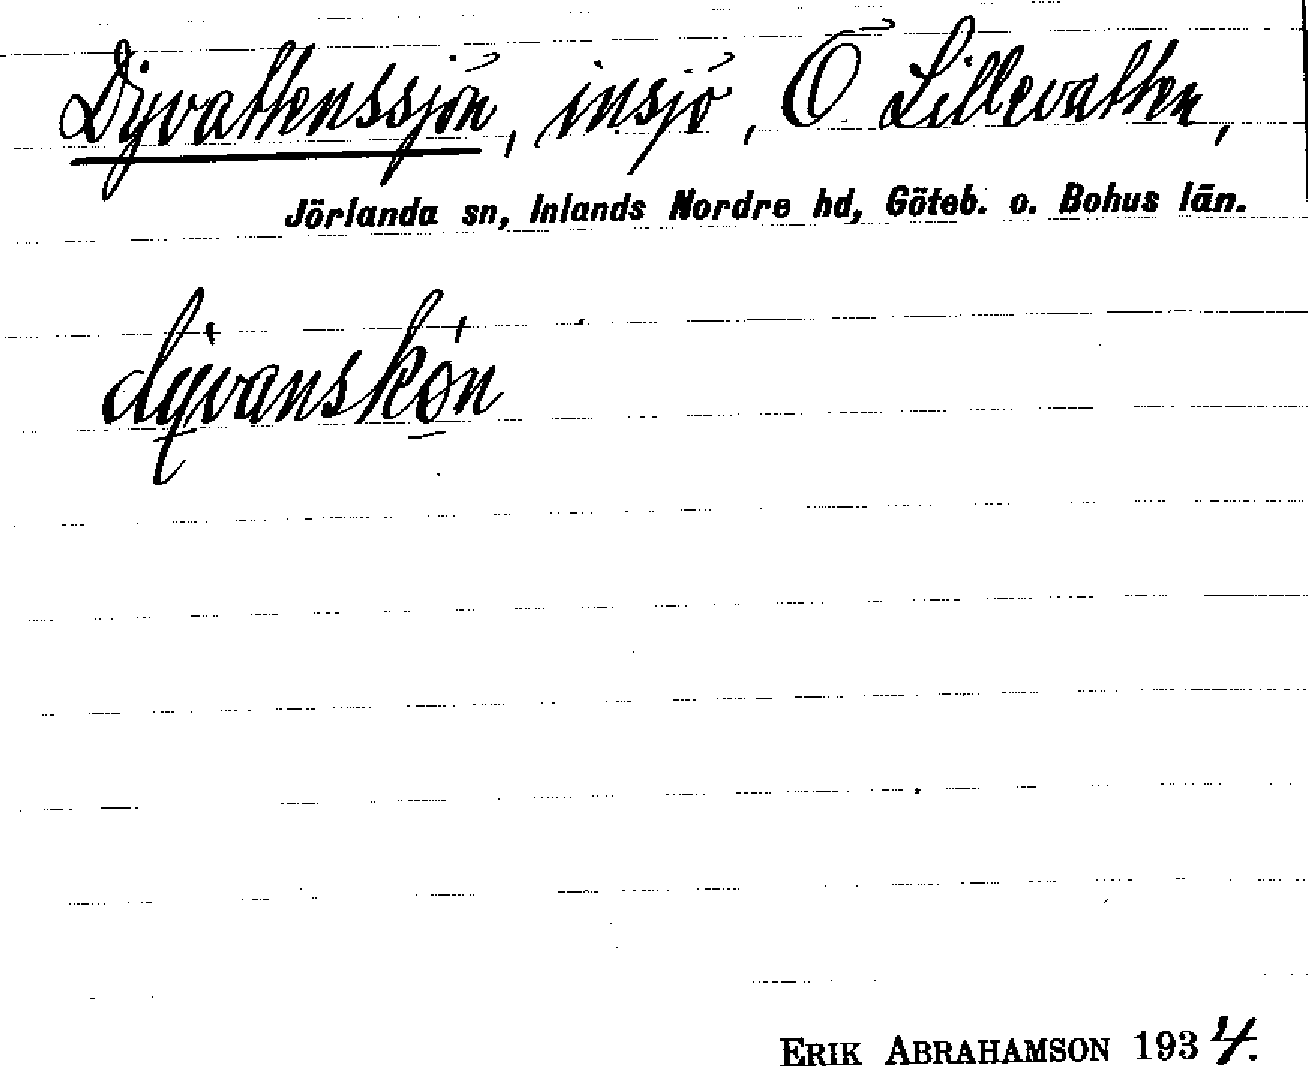 Dyvattenssjön, insjö, Ö Lillevatten,
Jörlanda sn, Inlands Nordre hd, Göteb. o. Bohus län.
dỳ̠vanskø̠̀n
ERIK ABRAHAMSON 1934.